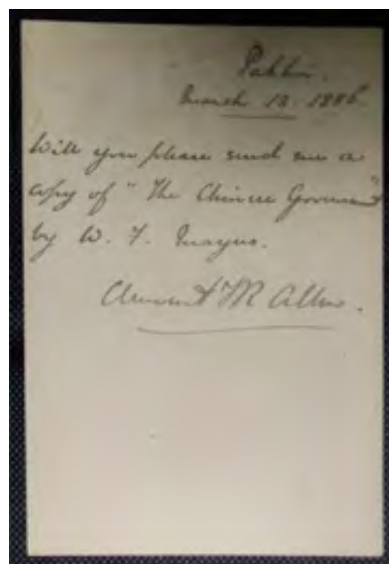 Pakhoi.
March 12. 1886.
Will you please send me a
copy of "The Chinese Government"
by W. F. Mayers.
Clement F R Allen.